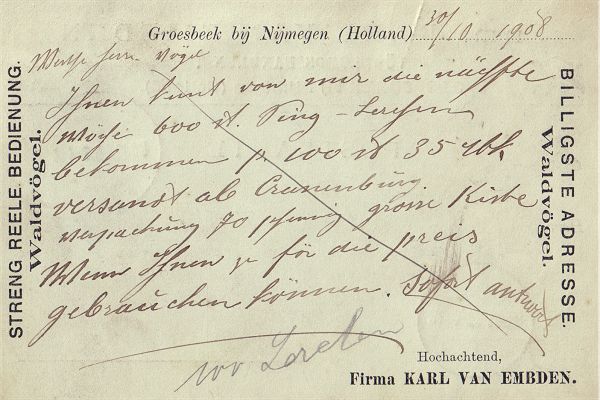 Groesbeek bij Nijmegen (Holland) 30/10 1908
Werthe Herr Vögel
Ihnen kunt von mir die nächste
Woche 600 st. Sing-Lerchen
bekommen p 100 st 35 Mk
versandt ab Cranenburg.
verpachung 70 pfennig grosse Kiste
Wenn Ihnen ze för die preis
gebrauchen können. Sofort antword
100 Lerchen
STRENG REELE. BEDIENUNG.
Waldvögel.
BILLIGSTE ADRESSE.
Waldvögel.
Hochachtend,
Firma KARL VAN EMBDEN.